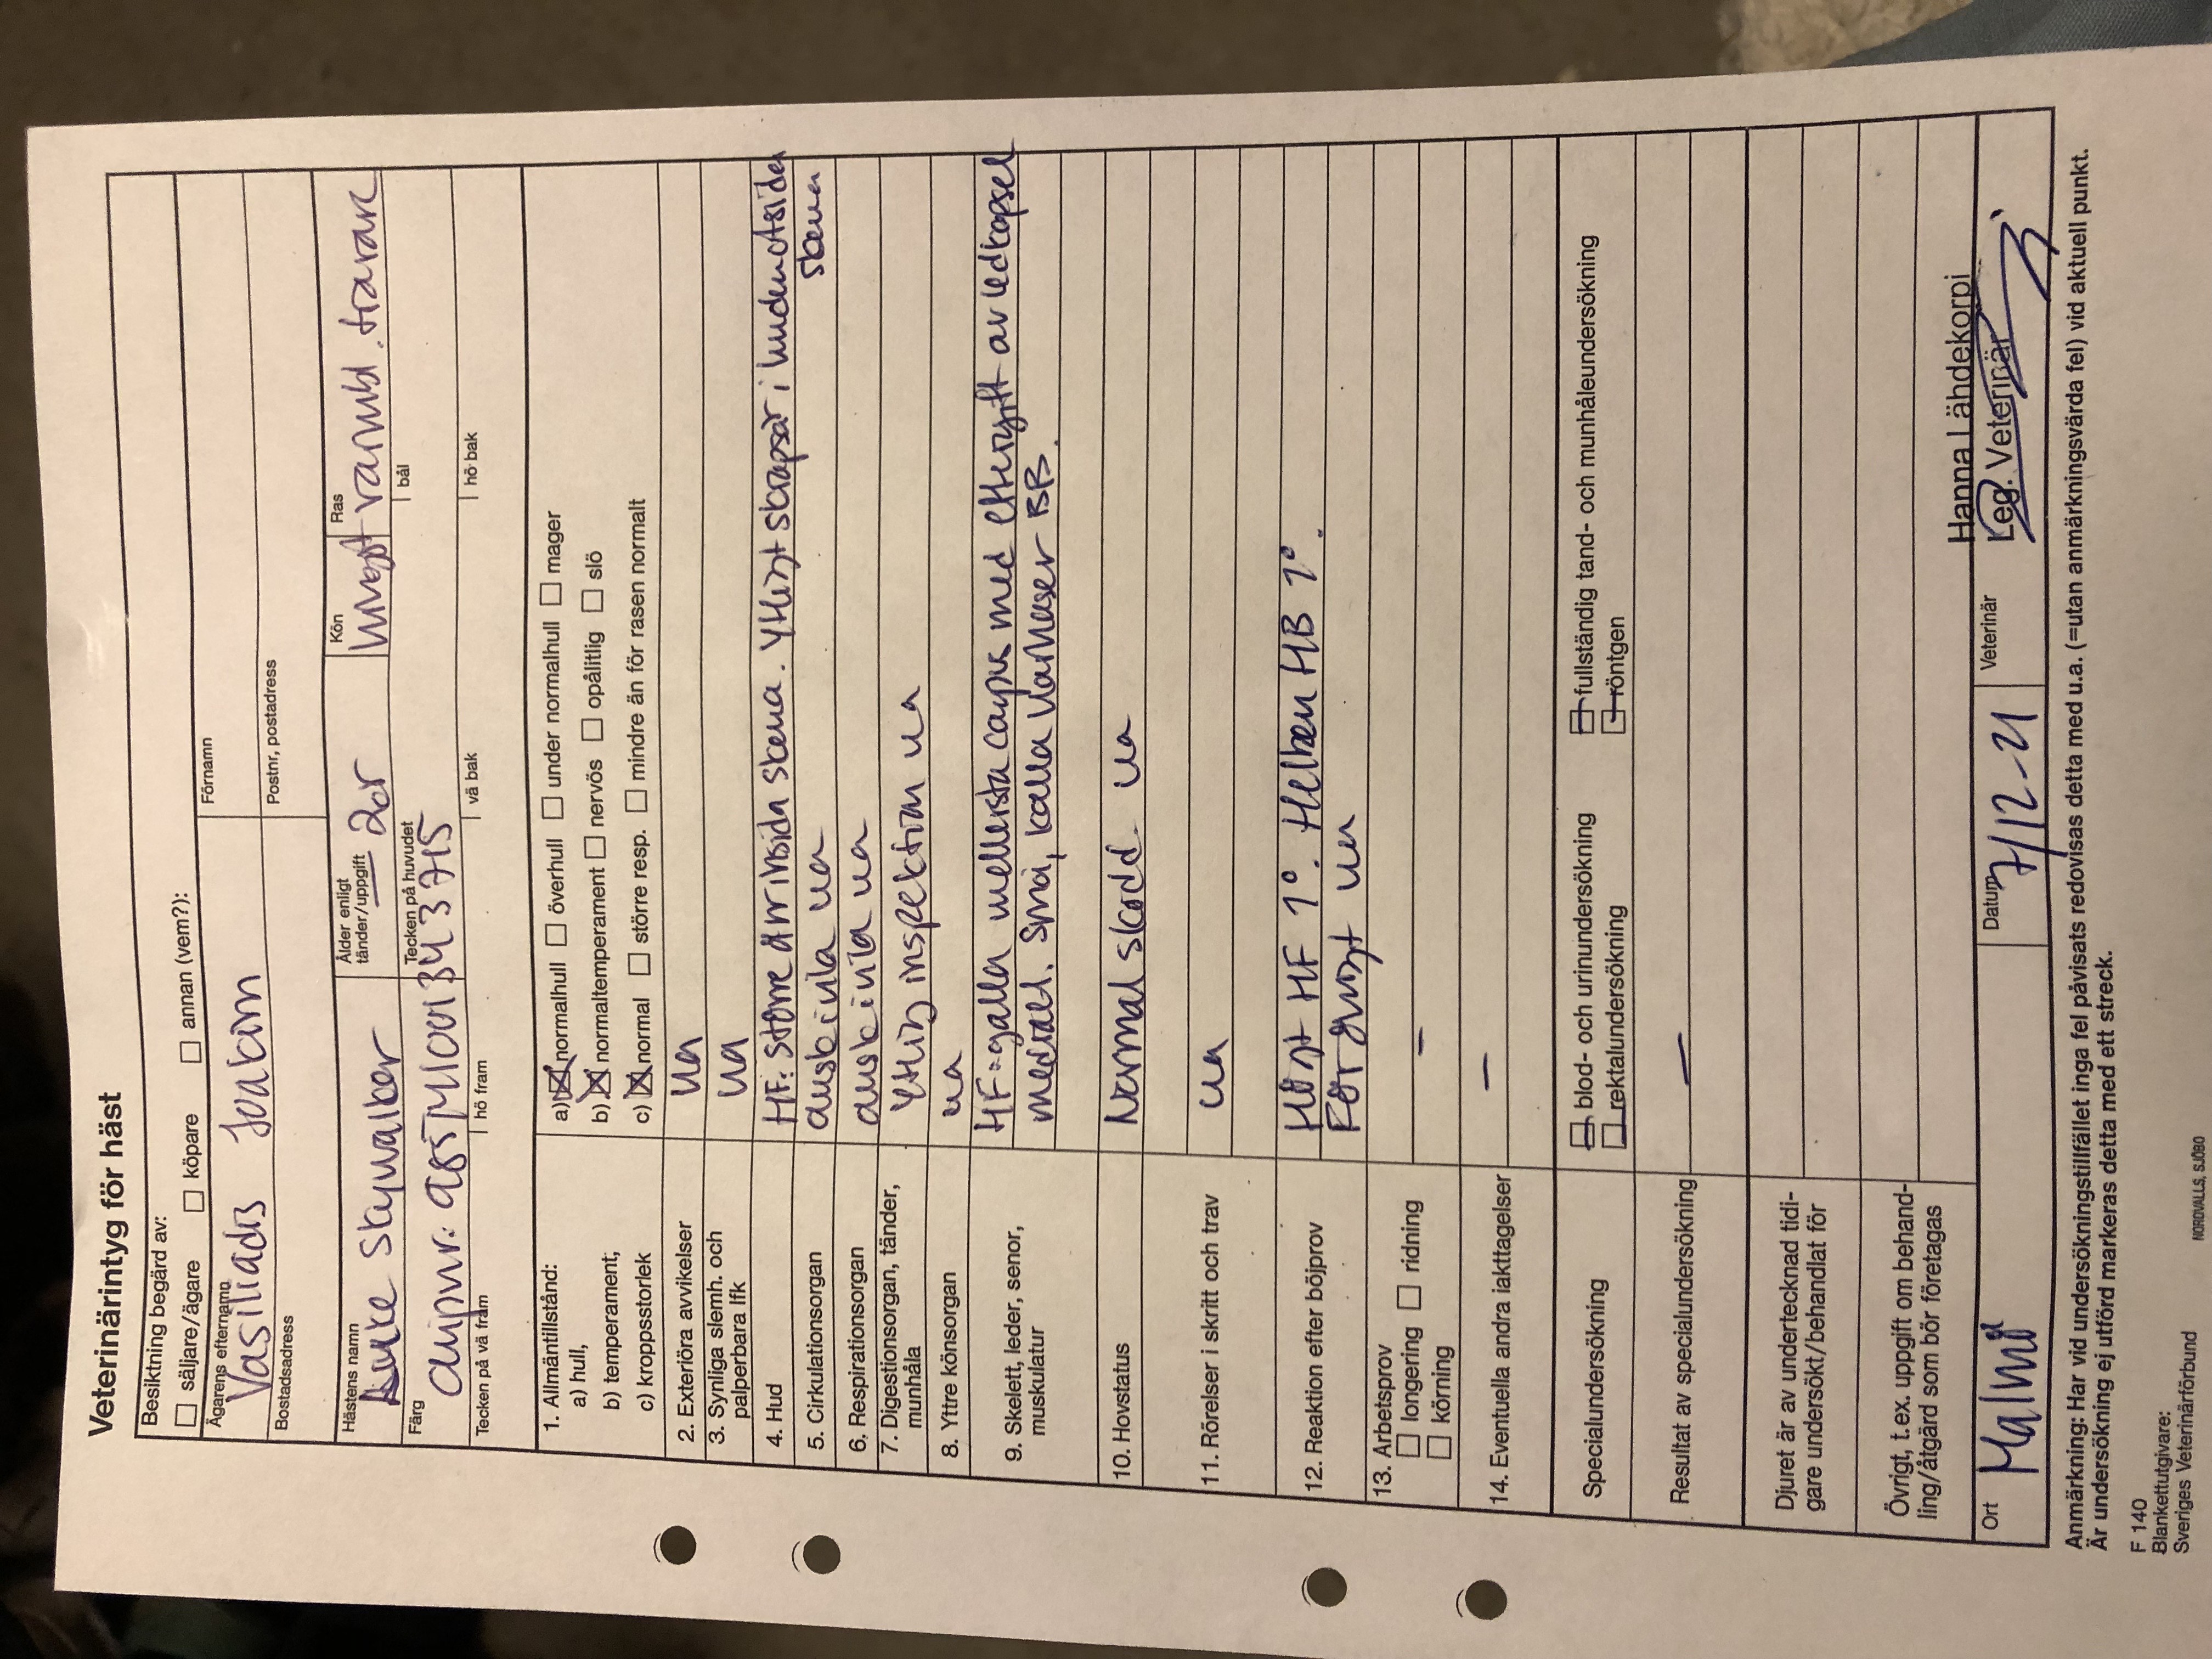 Veterinärintyg för häst
Besiktning begärd av:
☐ säljare/ägare ☐ köpare ☐ annan (vem?):
Ägarens efternamn Förnamn
Vasiliadis Joakim
Bostadsadress Postnr, postadress
Hästens namn Ålder enligt tänder/uppgift Kön Ras
Luke Skywalker 2år hingst varmbl. travare
Färg Tecken på huvudet bål
chipnr.
Tecken på vä fram hö fram vä bak hö bak
1. Allmäntillstånd:
a) hull, a) ☒ normalhull ☐ överhull ☐ under normalhull ☐ mager
b) temperament; b) ☒ normaltemperament ☐ nervös ☐ opålitlig ☐ slö
c) kroppsstorlek c) ☒ normal ☐ större resp. ☐ mindre än för rasen normalt
2. Exteriöra avvikelser ua
3. Synliga slemh. och
palperbara lfk ua
4. Hud HF: större ärr insida skena. Ytligt skrapsår i huden utsidan
skena
5. Cirkulationsorgan ausk i vila ua
6. Respirationsorgan ausk i vila ua
7. Digestionsorgan, tänder,
munhåla ytlig inspektion ua
8. Yttre könsorgan ua
9. Skelett, leder, senor,
muskulatur
HF = galla mellersta carpus med eftergift av ledkapsel
medialt. Små, kalla BB.
10. Hovstatus Normal skodd. ua
11. Rörelser i skritt och trav ua
12. Reaktion efter böjprov Högt HF 1°. Helben HB 1°.
För övrigt ua
13. Arbetsprov
☐ longering ☐ ridning –
☐ körning
14. Eventuella andra iakttagelser –
Specialundersökning ☐ blod- och urinundersökning ☐ fullständig tand- och munhåleundersökning
☐ rektalundersökning ☐ röntgen
Resultat av specialundersökning –
Djuret är av undertecknad tidi-
gare undersökt/behandlat för
Övrigt, t.ex. uppgift om behand-
ling/åtgärd som bör företagas
Hanna Lähdekorpi
Ort Datum Veterinär Leg. Veterinär
Malmö 7/12-21
Anmärkning: Har vid undersökningstillfället inga fel påvisats redovisas detta med u.a. (=utan anmärkningsvärda fel) vid aktuell punkt.
Är undersökning ej utförd markeras detta med ett streck.
F 140
Blankettutgivare:
Sveriges Veterinärförbund NORDVALLS, SJÖBO